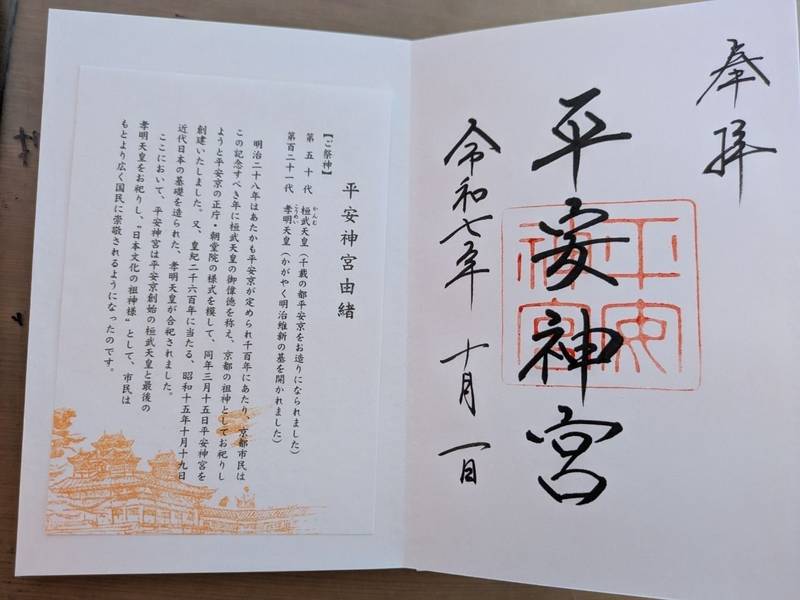 奉拝
平安神宮
平安神宮
令和七年 十月 一日
平安神宮由緒
【ご祭神】
第五十代 桓武天皇(千載の都平安京をお造りになられました)
かんむ
第百二十一代 孝明天皇(かがやく明治維新の基を開かれました)
こうめい
明治二十八年はあたかも平安京が定められ千百年にあたり、京都市民は
この記念すべき年に桓武天皇の御偉徳を称え、京都の祖神としてお祀りし
ようと平安京の正庁・朝堂院の様式を模して、同年三月十五日平安神宮を
創建いたしました。又、皇紀二千六百年に当たる、昭和十五年十月十九日
近代日本の基礎を造られた、孝明天皇が合祀されました。
ここにおいて、平安神宮は平安京創始の桓武天皇と最後の
孝明天皇をお祀りし、"日本文化の祖神様"として、市民は
もとより広く国民に崇敬されるようになったのです。